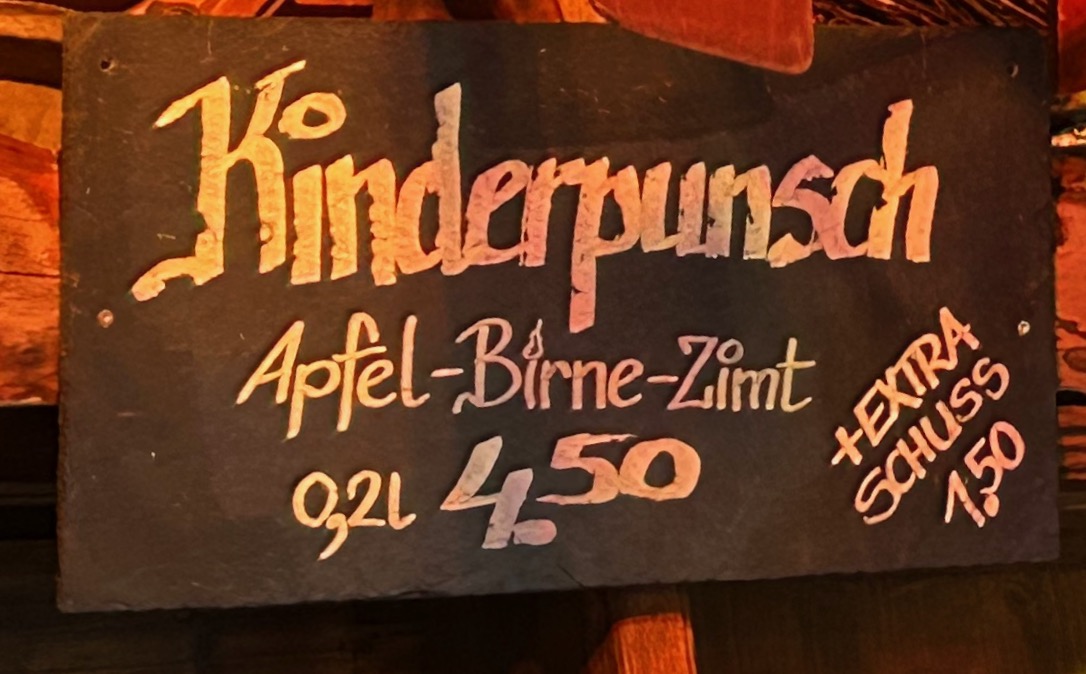 Kinderpunsch
Apfel-Birne-Zimt
0,2l 4.50
+EXTRA
SCHUSS
1.50